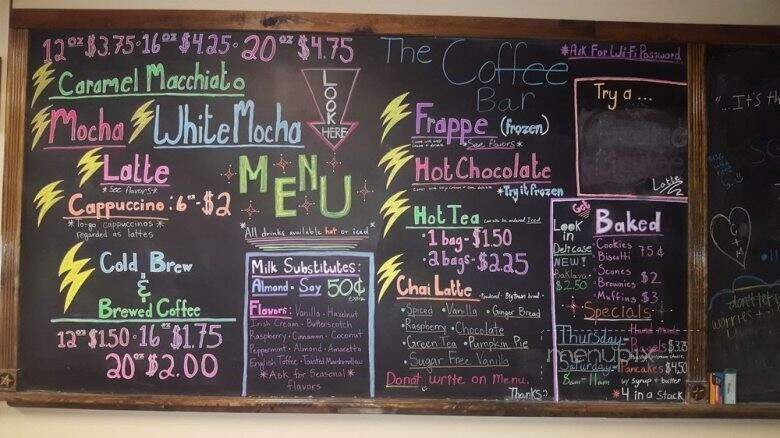 12oz $3.75 · 16oz $4.25 · 20oz $4.75
Caramel Macchiato
Mocha
White Mocha
LOOK HERE
Latte
*See flavors*
Cappuccino: 6oz - $2
*to-go cappuccinos *
regarded as lattes
MENU
*All drinks available hot or iced*
Cold Brew
&
Brewed Coffee
12oz $1.50 · 16oz $1.75
20oz $2.00
Milk Substitutes:
Almond · Soy 50¢
extra
Flavors: Vanilla · Hazelnut
Irish Cream · Butterscotch
Raspberry · Cinnamon · Coconut
Peppermint · Almond · Amaretto
English Toffee · Toasted Marshmallow
*Ask for Seasonal*
flavors
The Coffee
Bar
*Ask For WiFi Password
Frappe (frozen)
*See flavors*
Hot Chocolate
*Try it Frozen
Hot Tea
Iced
· 1 bag - $1.50
· 2 bags - $2.25
Chai Latte
· Spiced · Vanilla · Ginger Bread
· Raspberry · Chocolate
· Green Tea · Pumpkin Pie
· Sugar Free Vanilla
Do not write on Menu.
Thanks :)
Try a ...
Latte
Look
in
Delicase
NEW!
Baklava
$2.50
Baked
· Cookies 75¢
· Biscotti
· Scones
· Brownies $2
· Muffins $3
Specials
Thursday - Hand made
Bagels $3.25
Saturday - Pancakes $4.50
8am - 11am w/ syrup + butter
*4 in a stack
menupix
"...It's th
C + M
don't let
worries